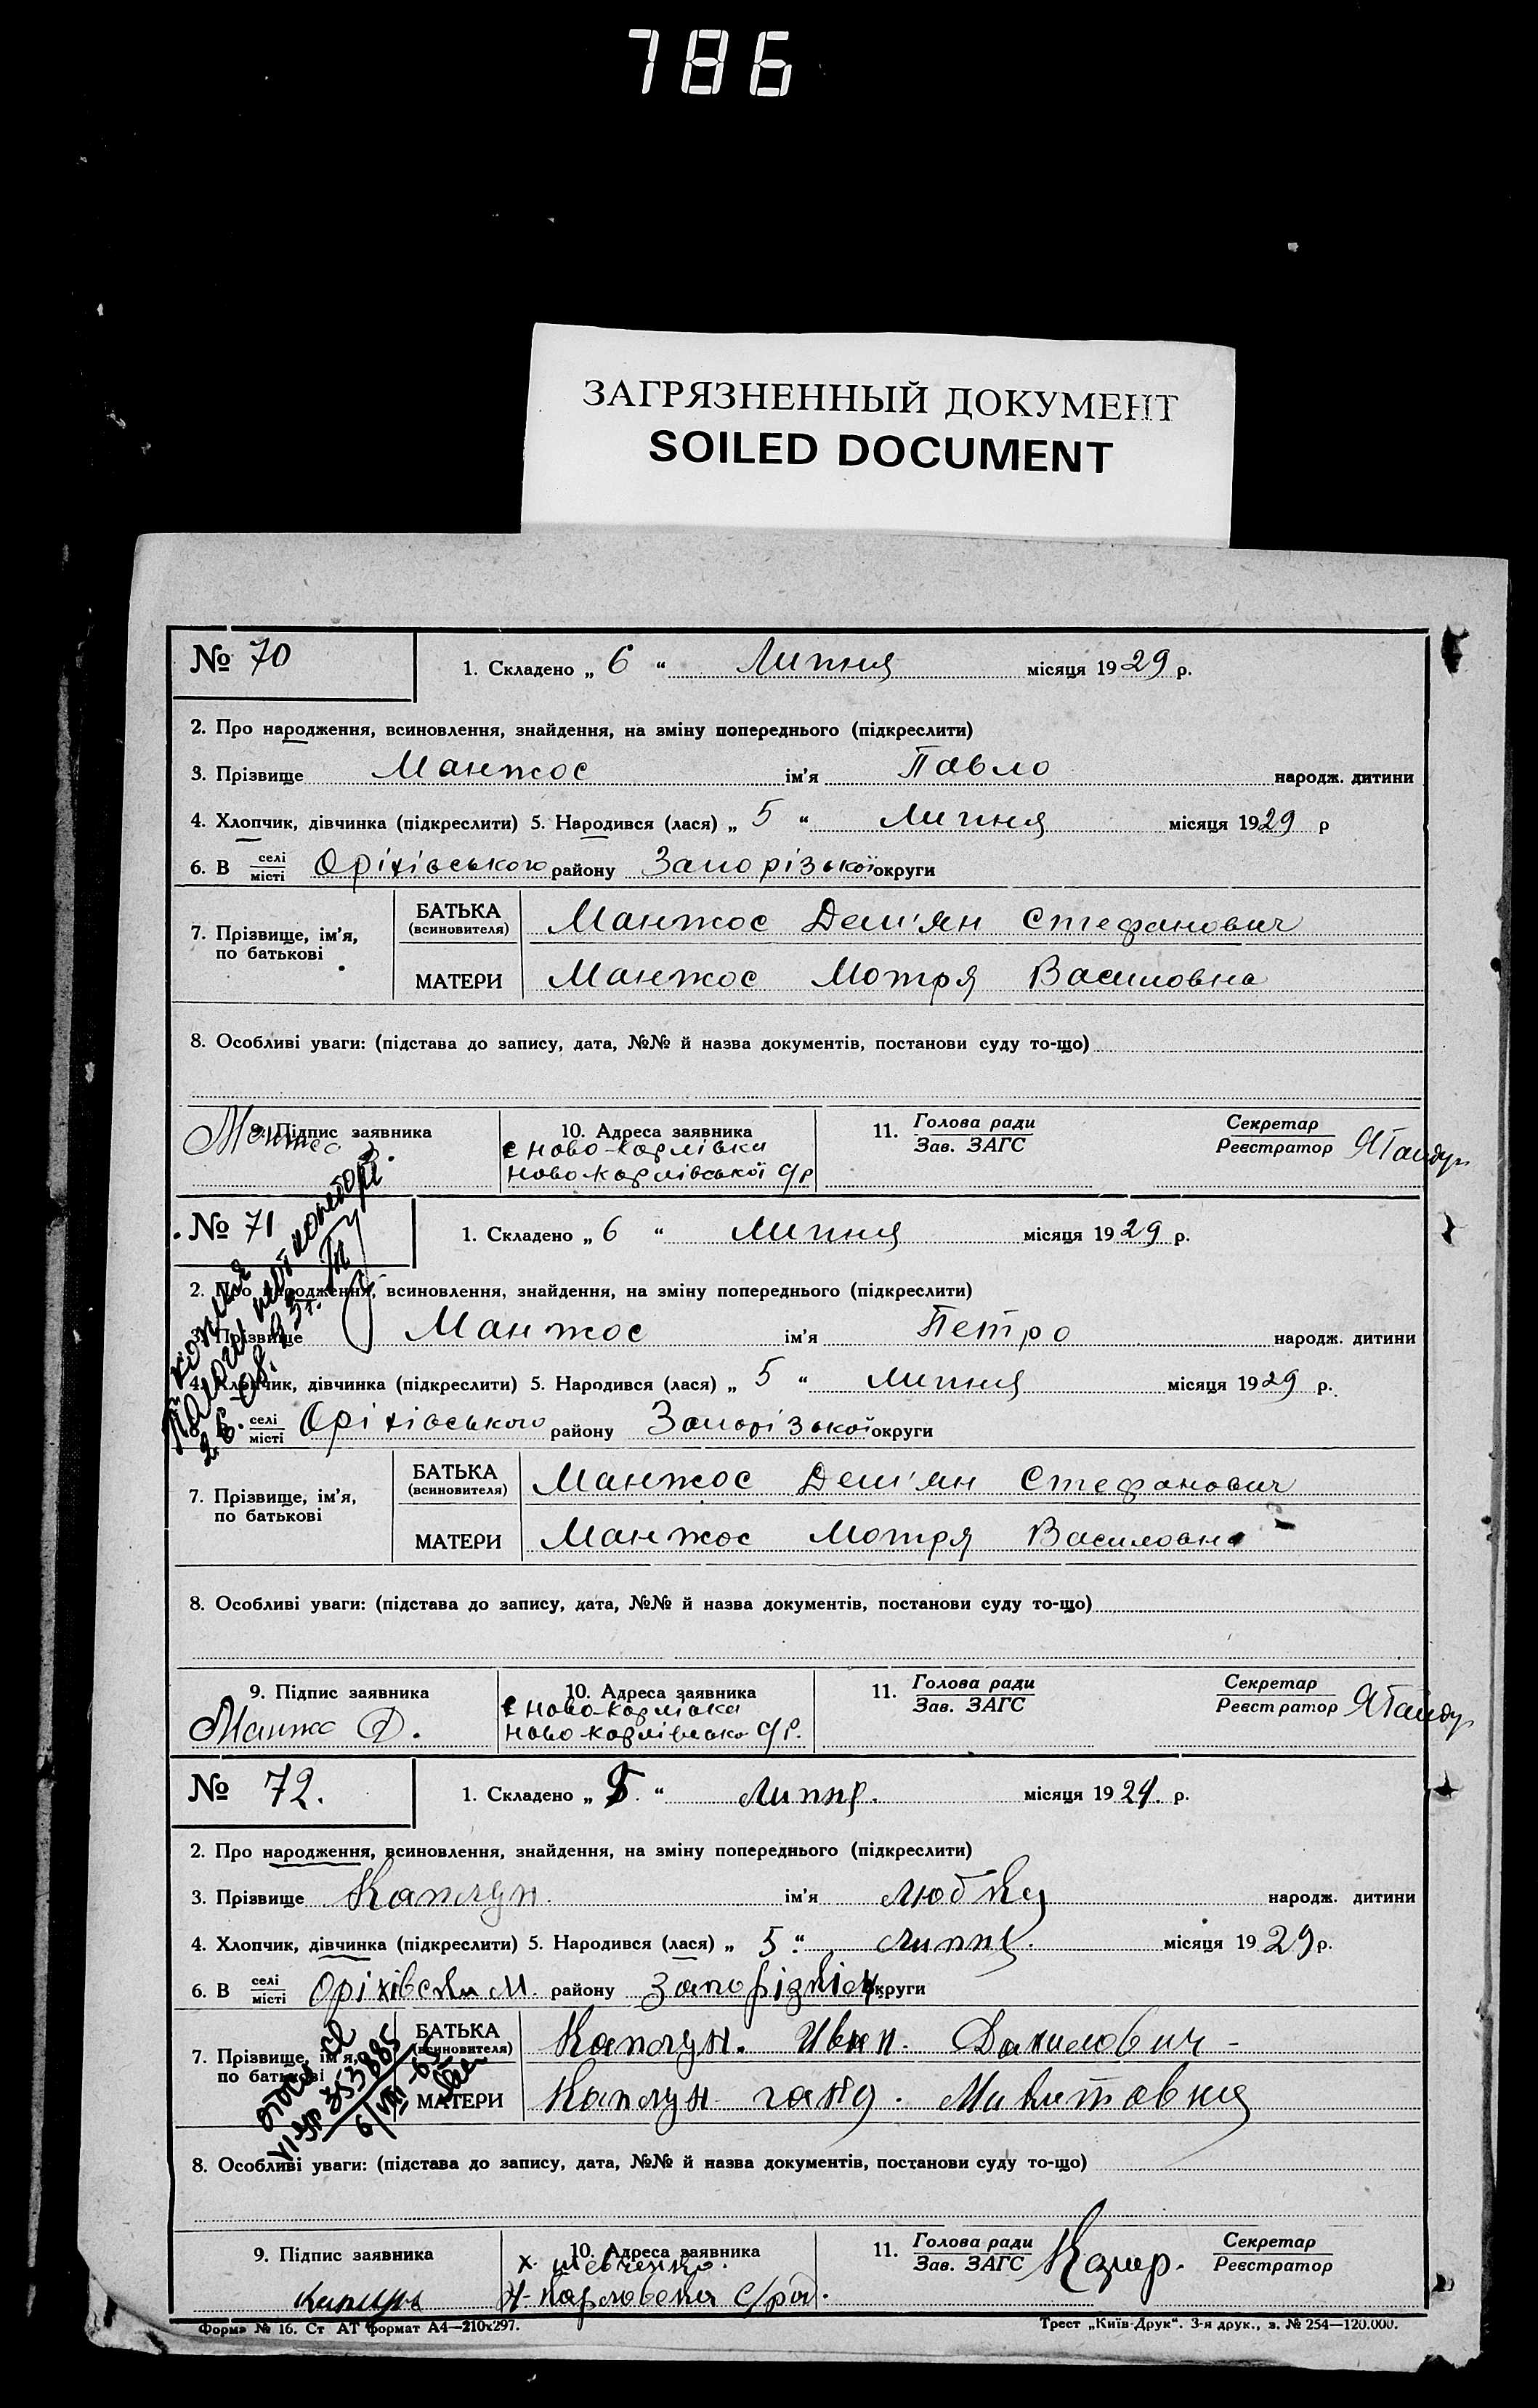 786
ЗАГРЯЗНЕННЫЙ ДОКУМЕНТ
SOILED DOCUMENT
№ 70
1. Складено „ 6 “ Липня місяця 1929 р.
2. Про народження, всиновлення, знайдення, на зміну попереднього (підкреслити)
3. Прізвище Манжос ім'я Павло народж. дитини
4. Хлопчик, дівчинка (підкреслити) 5. Народився (лася) „ 5 “ Липня місяця 1929 р
6. В селі місті Оріхівського району Запорізької округи
7. Прізвище, ім'я, по батькові
БАТЬКА (всиновителя) Манжос Дем'ян Стефанович
МАТЕРИ Манжос Мотря Василовна
8. Особливі уваги: (підстава до запису, дата, №№ й назва документів, постанови суду то-що)
9. Підпис заявника
10. Адреса заявника
с Ново-Карлівка
Ново-Карлівської с/р
11. Голова ради Зав. ЗАГС
Секретар Реєстратор
№ 71
1. Складено „ 6 “ Липня місяця 1929 р.
2. Про народження, всиновлення, знайдення, на зміну попереднього (підкреслити)
3. Прізвище Манжос ім'я Петро народж. дитини
4. Хлопчик, дівчинка (підкреслити) 5. Народився (лася) „ 5 “ Липня місяця 1929 р.
селі місті Оріхівського району Запорізької округи
7. Прізвище, ім'я, по батькові
БАТЬКА (всиновителя) Манжос Дем'ян Стефанович
МАТЕРИ Манжос Мотря Василовна
8. Особливі уваги: (підстава до запису, дата, №№ й назва документів, постанови суду то-що)
9. Підпис заявника
Манжос Д.
10. Адреса заявника
с Ново-Карлівка
Ново-Карлівсько с/р.
11. Голова ради Зав. ЗАГС
Секретар Реєстратор
№ 72.
1. Складено „ “ Липня. місяця 1929. р.
2. Про народження, всиновлення, знайдення, на зміну попереднього (підкреслити)
3. Прізвище Каплун. ім'я народж. дитини
4. Хлопчик, дівчинка (підкреслити) 5. Народився (лася) „ 5 “ Липня. місяця 1929 р.
6. В селі місті району округи
7. Прізвище, ім'я, по батькові
БАТЬКА (всиновителя) Каплун. Иван. Данилович -
МАТЕРИ Каплун Микитовна
353885
8. Особливі уваги: (підстава до запису, дата, №№ й назва документів, постанови суду то-що)
9. Підпис заявника
10. Адреса заявника
х. Шевченко.
11. Голова ради Зав. ЗАГС
Секретар Реєстратор
Форма № 16. Ст АТ формат А4—210х297.
Трест „Київ-Друк“. 3-я друк., з. № 254—120.000.